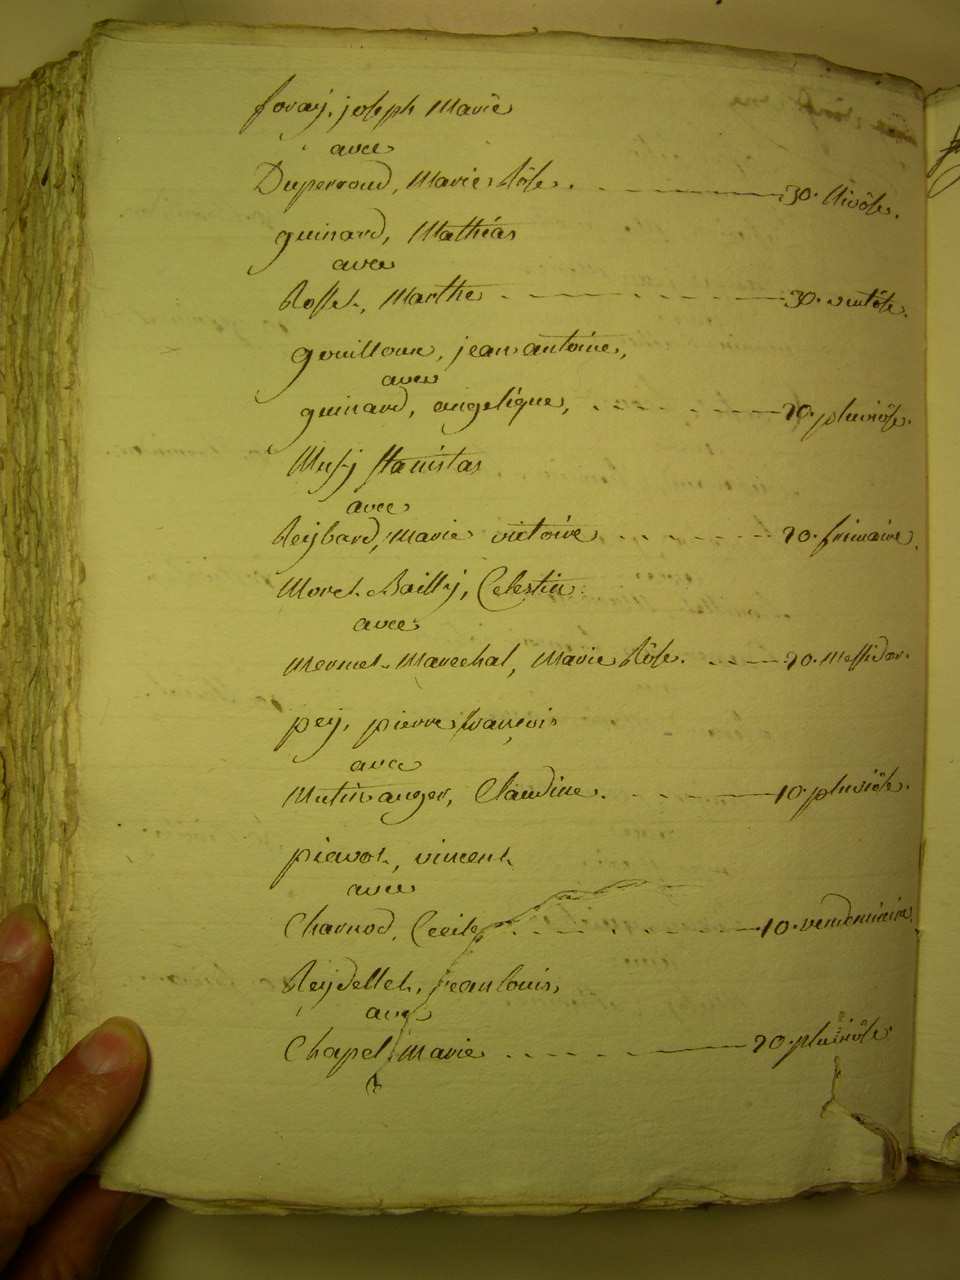 foray, joseph Marie
avec
Duperroud, Marie Rôse. 30. Nivôse.
guinard, Mathias
avec
Rosset, Marthe 30. ventôse.
gouilloux, jean antoine,
avec
guinard, angelique, 20. pluviôse.
Musy Stanislas
avec
Reybard, Marie victoire 20. frimaire.
Morel-Bailly, Celestin
avec
Mermet-Marechal, Marie Rôse. 20. Messidor.
pey, pierre françois
avec
Mutin auger, Claudine. 10. pluviôse.
piavot, vincent
avec
Charnod, Cecile 10. vendemiaire.
Reydellet, jean louis,
avec
Chapel, Marie 20. pluviôse.